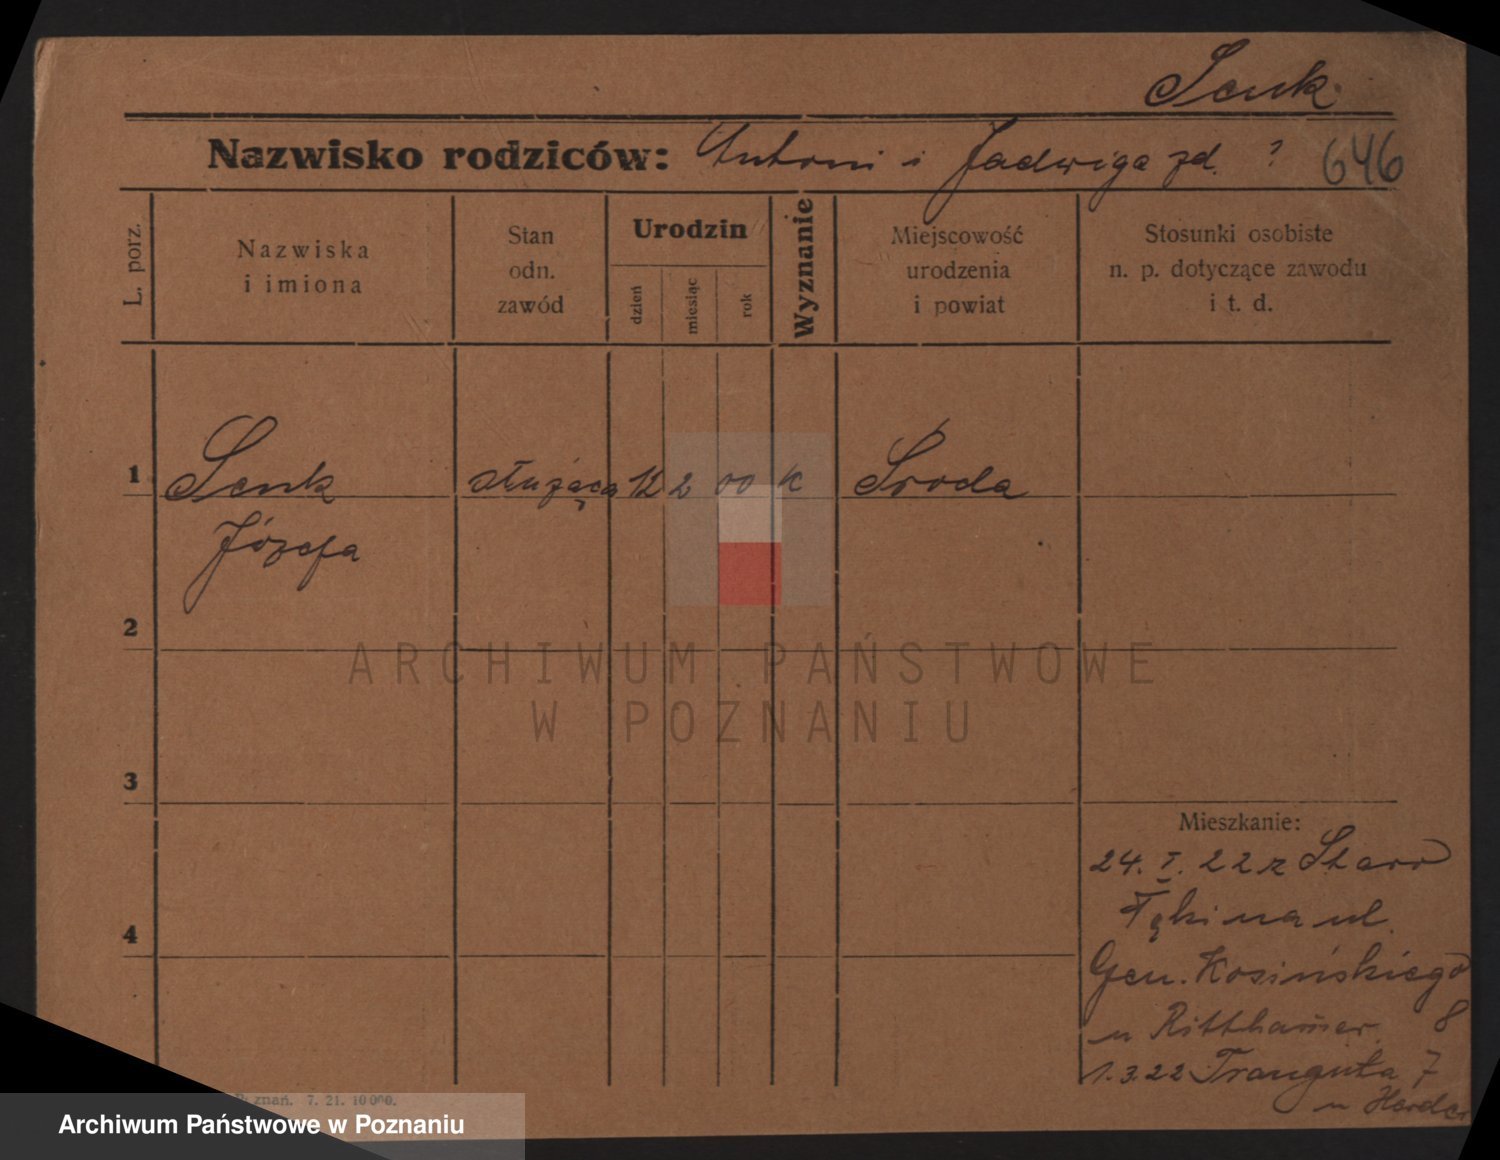 Senk
Nazwisko rodziców: Antoni i Jadwiga zd. ? 646
L. porz.
Nazwiska
i imiona
Stan
odn.
zawód
Urodzin
dzień
miesiąc
rok
Wyznanie
Miejscowość
urodzenia
i powiat
Stosunki osobiste
n. p. dotyczące zawodu
i t. d.
1 Senk służąca 12 2 00 K Środa
Józefa
2
3
4
Mieszkanie:
24. I. 22 z
na ul.
Gen. Kosińskiego
u 8
1.3.22 Traugutta 7
u
7. 21. 10000.
ARCHIWUM PAŃSTWOWE
W POZNANIU
Archiwum Państwowe w Poznaniu